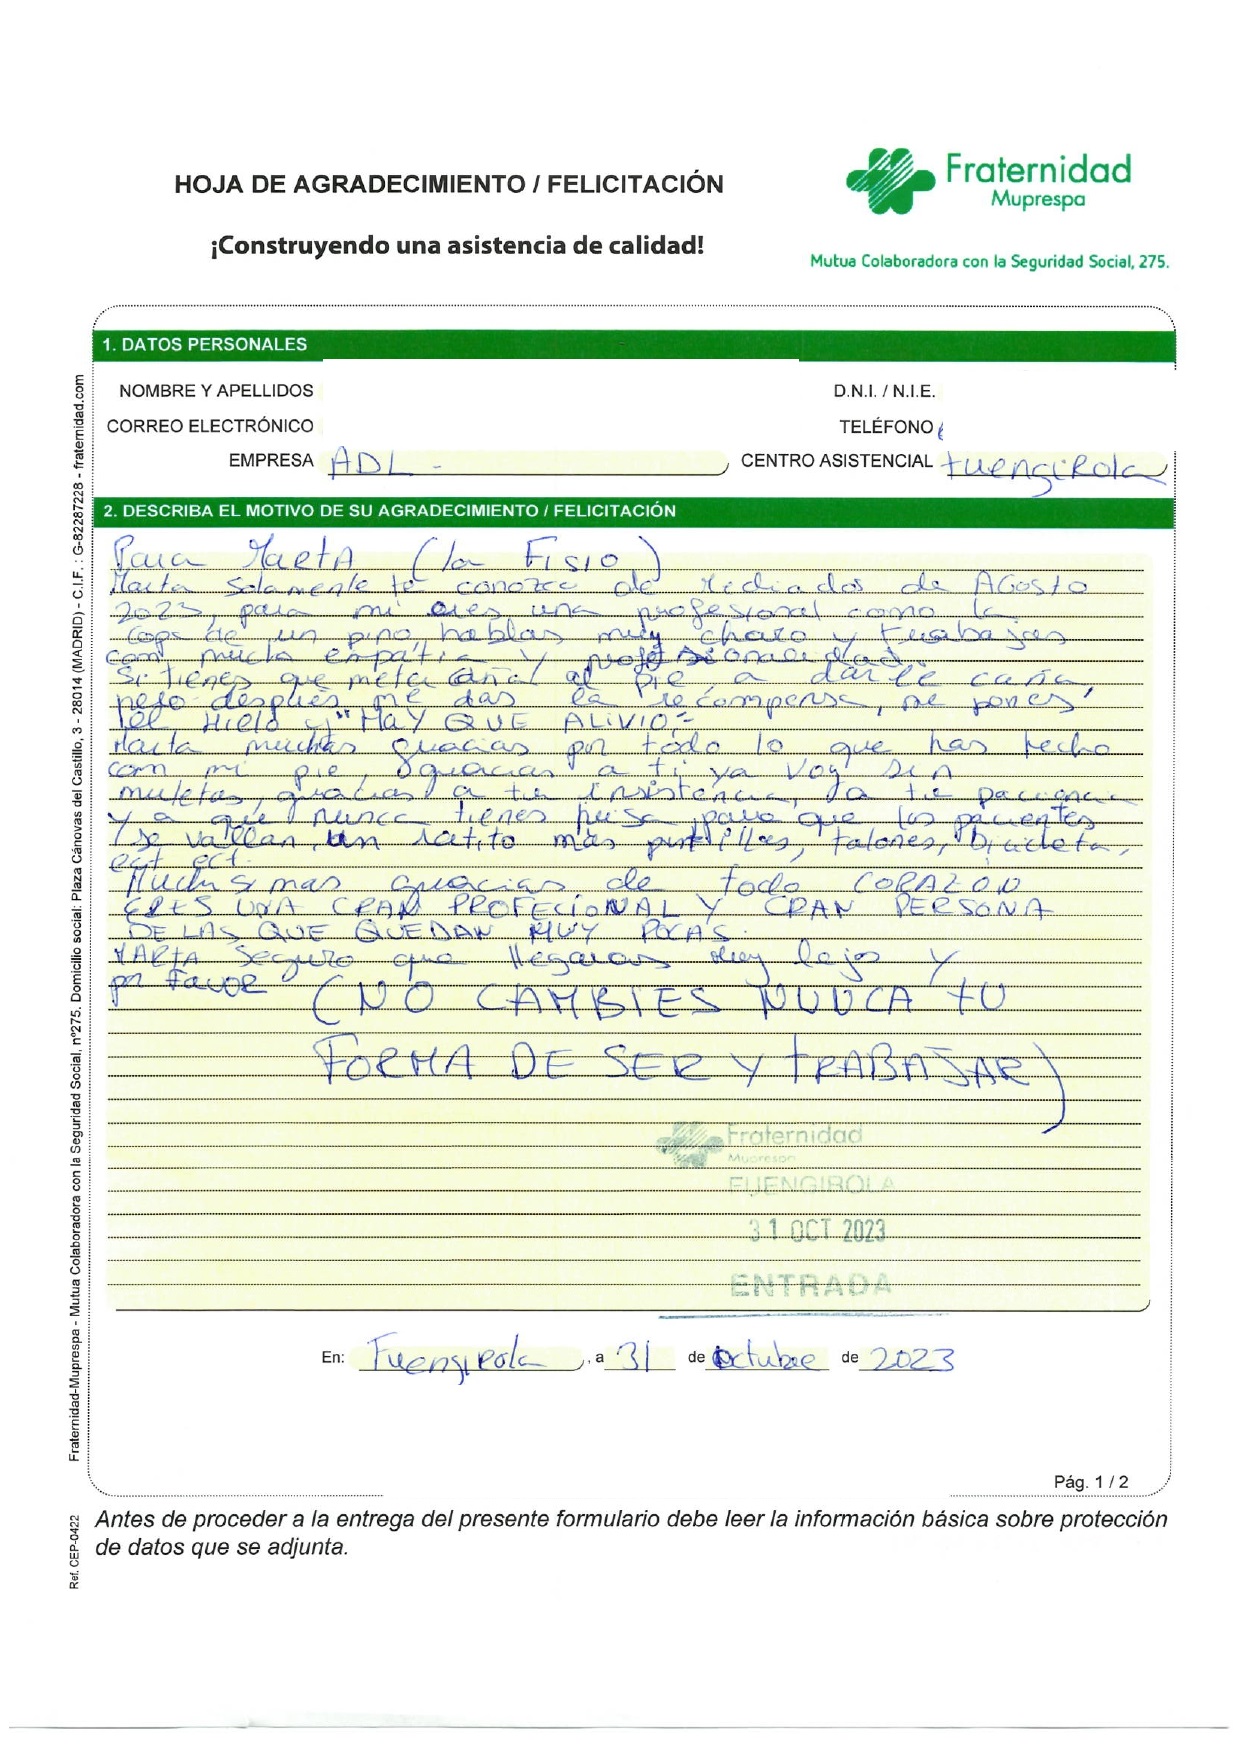 HOJA DE AGRADECIMIENTO / FELICITACIÓN
¡Construyendo una asistencia de calidad!
Fraternidad
Muprespa
Mutua Colaboradora con la Seguridad Social, 275.
1. DATOS PERSONALES
NOMBRE Y APELLIDOS
D.N.I. / N.I.E.
CORREO ELECTRÓNICO
TELÉFONO
EMPRESA ADL -
CENTRO ASISTENCIAL FuengiRola
2. DESCRIBA EL MOTIVO DE SU AGRADECIMIENTO / FELICITACIÓN
Para MartA (la Fisio)
Marta Solamente te conozco de Mediados de AGosto
2023, para mi eres una profesional como la
copa de un pino, hablas muy claro y trabajas
con mucha empatia y profesionalidad.
Si tienes que meter caña al pie, a darle caña,
pero después me das la recompensa, me pones
el Hielo y "HAY QUE ALIVIO"
Marta muchas gracias por todo lo que has hecho
com mi pie, gracias a ti ya voy sin
muletas, gracias a tu insistencia, a tu paciencia
y a que nunca tienes prisa para que los pacientes
se vallan, un ratito más puntillas, talones, bicicleta,
ect ect.
Muchisimas gracias de todo CORAZON
ERES UNA GRAN PROFECIONAL Y GRAN PERSONA
DE LAS QUE QUEDAN MUY POCAS.
MARTA Seguro que llegaras muy lejos y
por Favor (NO CAMBIES NUNCA TU
FORMA DE SER Y TRABAJAR)
Fraternidad
Muprespa
FUENGIROLA
31 OCT 2023
ENTRADA
En: FuengiRola, a 31 de Octubre de 2023
Pág. 1 / 2
Antes de proceder a la entrega del presente formulario debe leer la información básica sobre protección
de datos que se adjunta.
Fraternidad-Muprespa - Mutua Colaboradora con la Seguridad Social, nº275. Domicilio social: Plaza Cánovas del Castillo, 3 - 28014 (MADRID) - C.I.F. : G-82287228 - fraternidad.com
Ref. CEP-0422